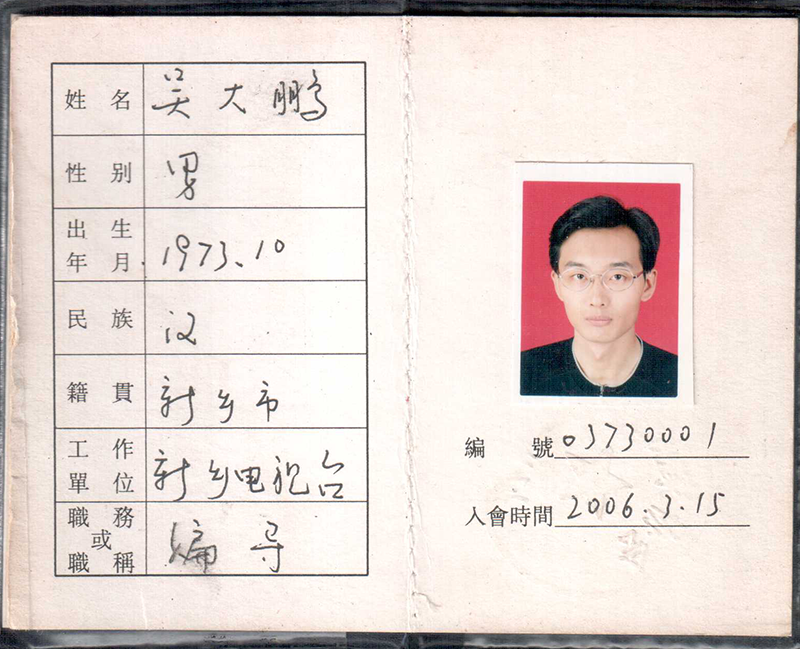 姓名 吴大鹏
性别 男
出生年月 1973.10
民族 汉
籍貫 新乡市
工作單位 新乡电视台
職務或職稱 编导
编號 03730001
入會時間 2006.3.15